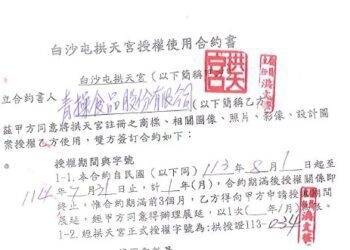 白沙屯拱天宮授權使用合約書
白沙屯拱天宮（以下簡稱
立合約書人 青操食品股份有限公司（以下簡稱乙方）
茲甲方同意將拱天宮註冊之商標、相關圖像、照片、影像、設計圖
案授權乙方使用，雙方簽訂合約如下：
授權期間與字號
1-1.本合約自民國（以下同）113年8月1日起至
114年7月31日止，計1年(月)，合約期滿後授權關係即
終止，惟合約期滿前3個月，乙方得向甲方申請授權期間
展延，經甲方同意得辦理展延，以1次(__年/__月)
1-2.經拱天宮正式授權字號為：拱授113-034